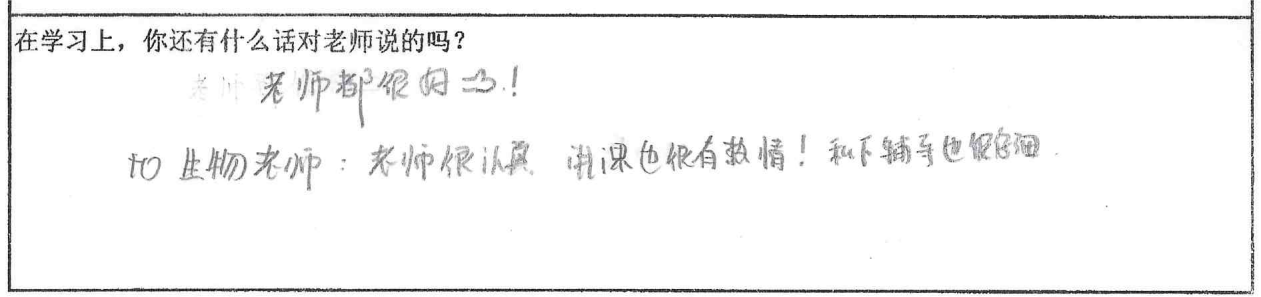 在学习上，你还有什么话对老师说的吗？
老师都很好 :3!
to 生物老师：老师很认真 讲课也很有激情！私下辅导也很仔细.